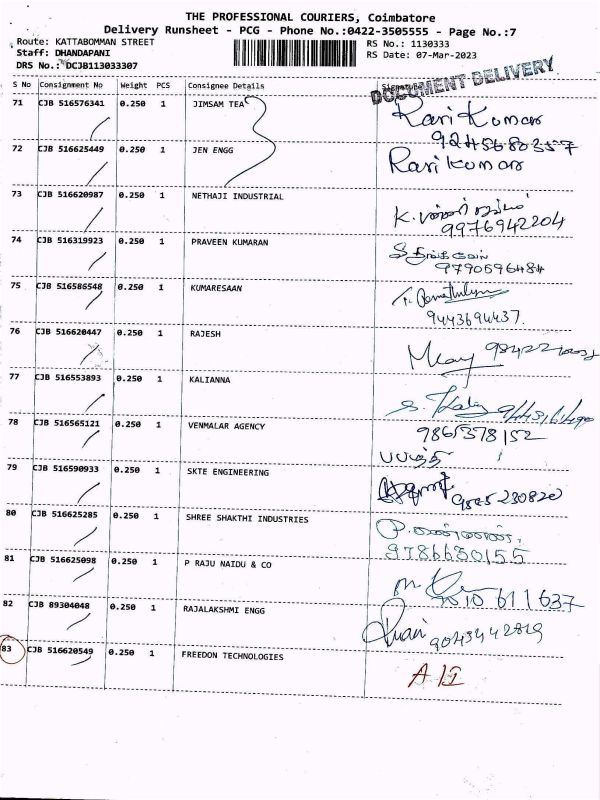 THE PROFESSIONAL COURIERS, Coimbatore
Delivery Runsheet - PCG - Phone No.:0422-3505555 - Page No.:7
Route: KATTABOMMAN STREET RS No.: 1130333
Staff: DHANDAPANI RS Date: 07-Mar-2023
DRS No.: DCJB113033307
DOCUMENT DELIVERY
S No Consignment No Weight PCS Consignee Details Signature
71 CJB 516576341 0.250 1 JIMSAM TEA Ravi Kumar
9245680357
72 CJB 516625449 0.250 1 JEN ENGG Ravi kumar
73 CJB 516620987 0.250 1 NETHAJI INDUSTRIAL K.
9976942204
74 CJB 516319923 0.250 1 PRAVEEN KUMARAN
9790596484
75 CJB 516586548 0.250 1 KUMARESAAN
9443694437.
76 CJB 516620447 0.250 1 RAJESH
77 CJB 516553893 0.250 1 KALIANNA
78 CJB 516565121 0.250 1 VENMALAR AGENCY 9865378152
79 CJB 516590933 0.250 1 SKTE ENGINEERING 9845230820
80 CJB 516625285 0.250 1 SHREE SHAKTHI INDUSTRIES
9786680155
81 CJB 516625098 0.250 1 P RAJU NAIDU & CO
611637
82 CJB 89304048 0.250 1 RAJALAKSHMI ENGG
9043442819
83 CJB 516620549 0.250 1 FREEDON TECHNOLOGIES